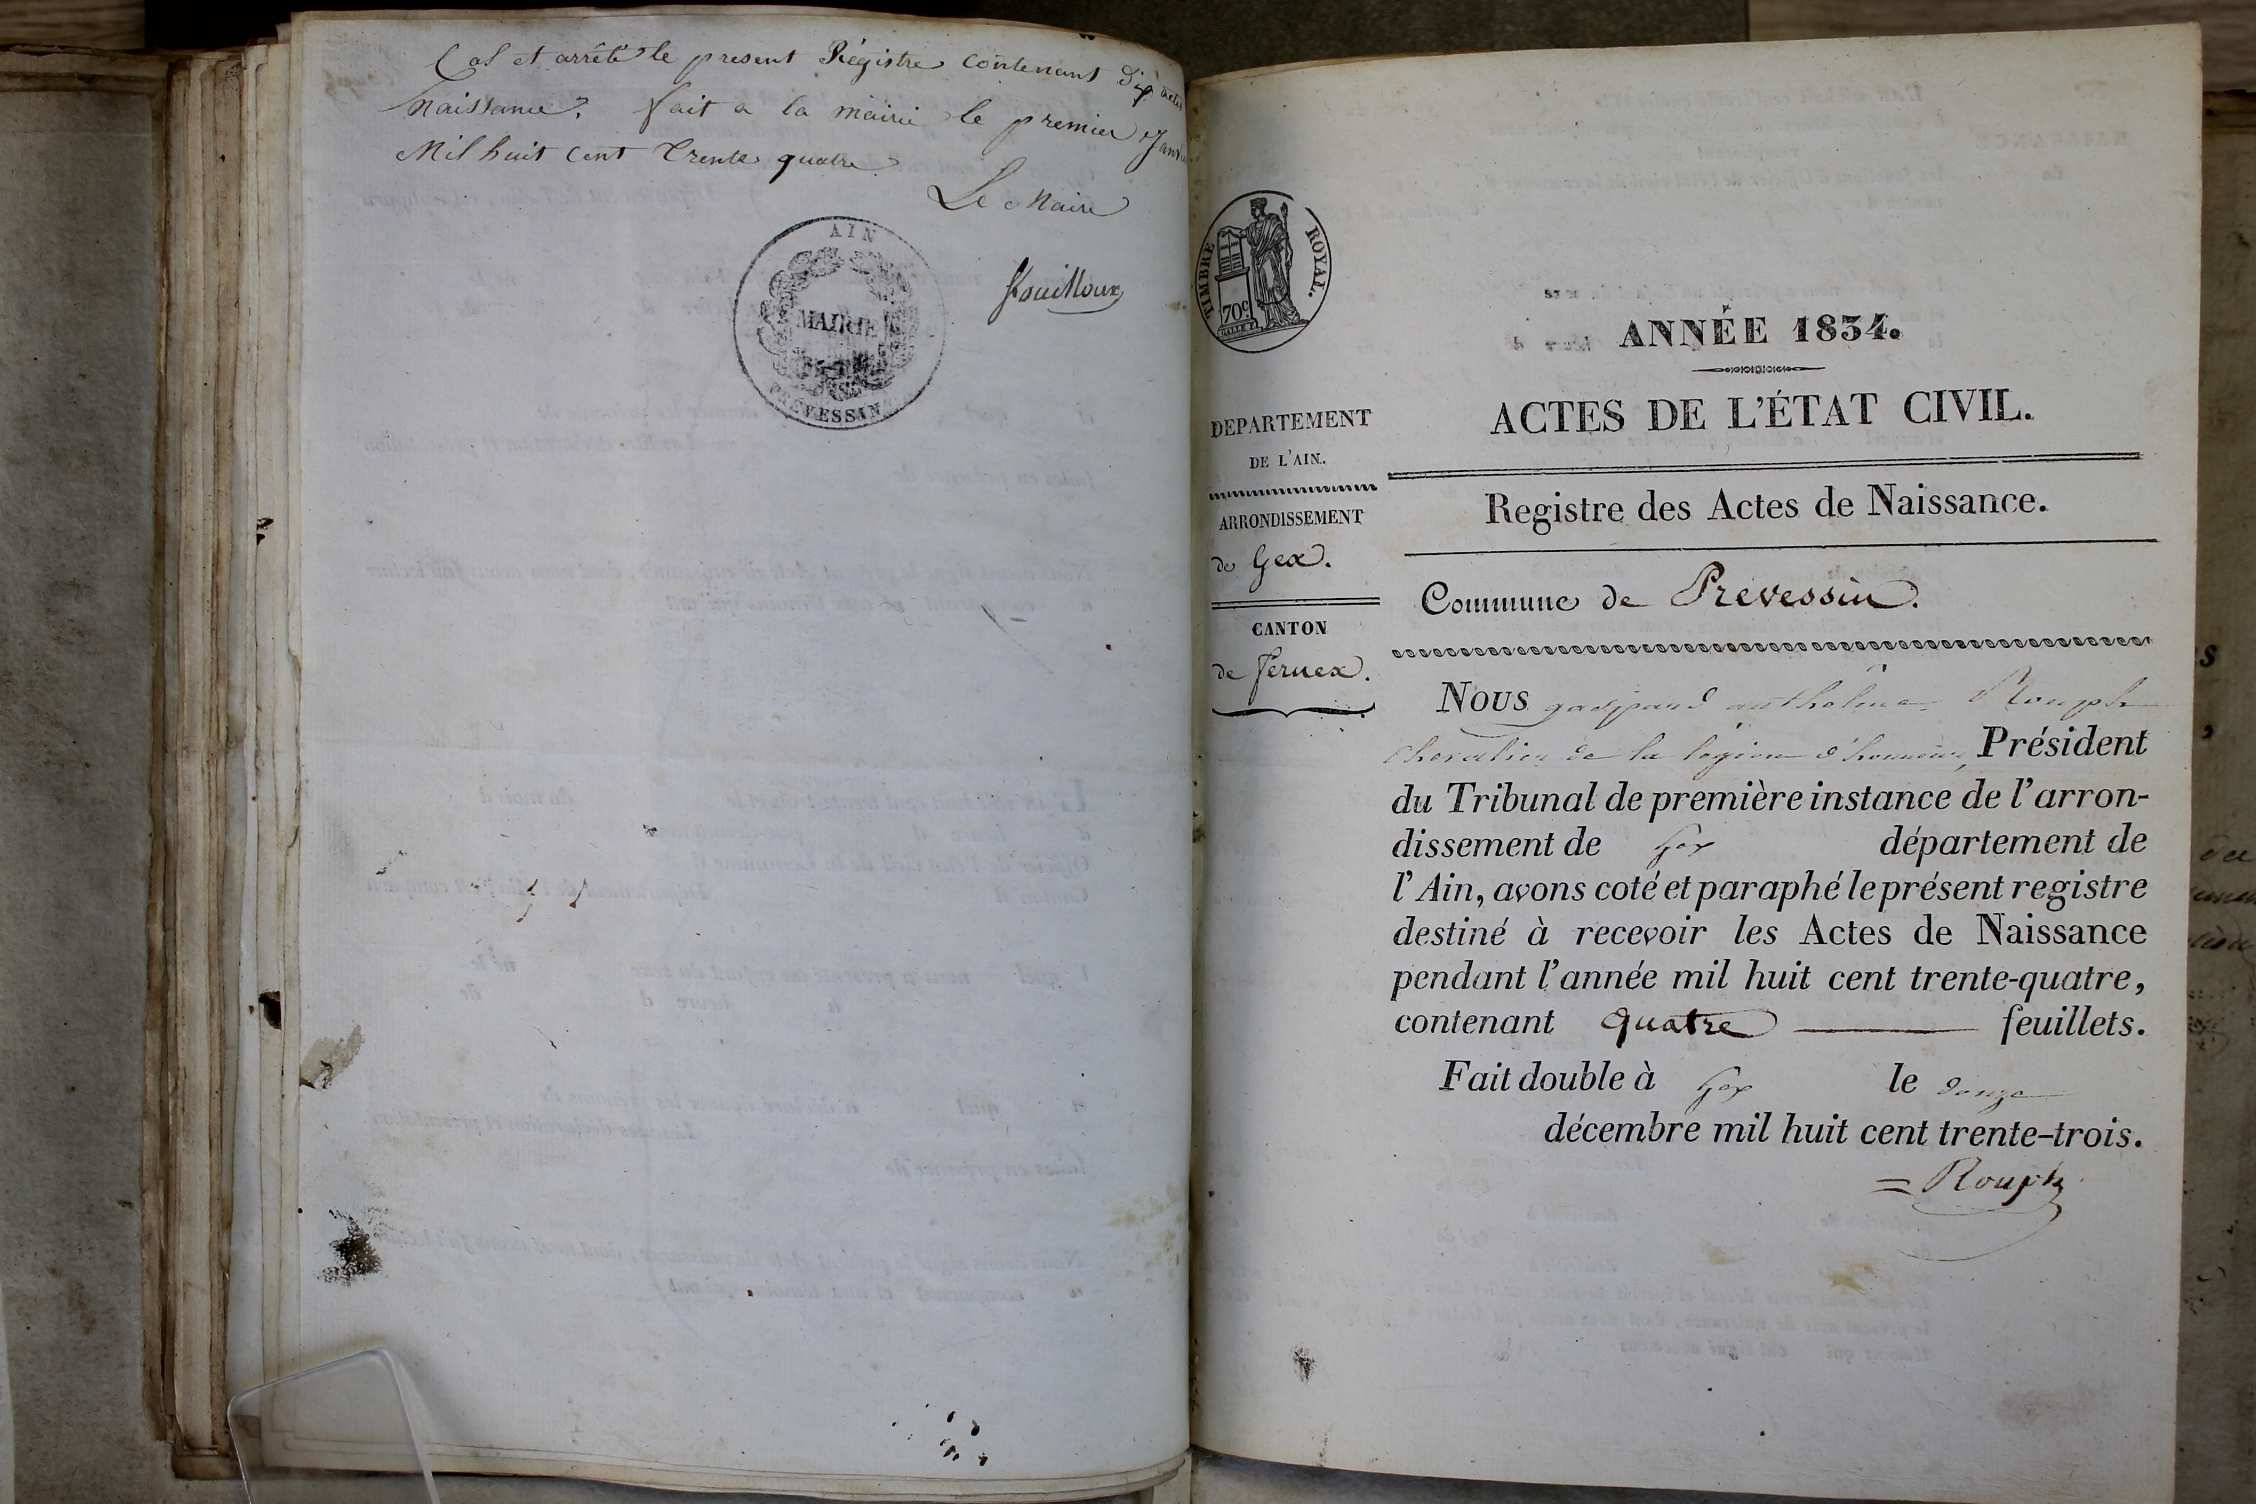 Clos et arrêté le present Régistre contenant Dix actes
Naissance. fait a la mairie le premier Janvier
Mil huit cent trente quatre
Le Maire
Fouilloux
AIN
MAIRIE
PREVESSIN
TIMBRE ROYAL.
70c
ANNÉE 1834.
ACTES DE L'ÉTAT CIVIL.
DEPARTEMENT
DE L'AIN.
ARRONDISSEMENT
de Gex.
CANTON
de fernex.
Registre des Actes de Naissance.
Commune de Prevessin.
Nous gaspard anthelme Rouph
chevalier de la légion d'honneur, Président
du Tribunal de première instance de l'arron-
dissement de Gex département de
l'Ain, avons coté et paraphé le présent registre
destiné à recevoir les Actes de Naissance
pendant l'année mil huit cent trente-quatre,
contenant quatre feuillets.
Fait double à Gex le douze
décembre mil huit cent trente-trois.
= Rouph